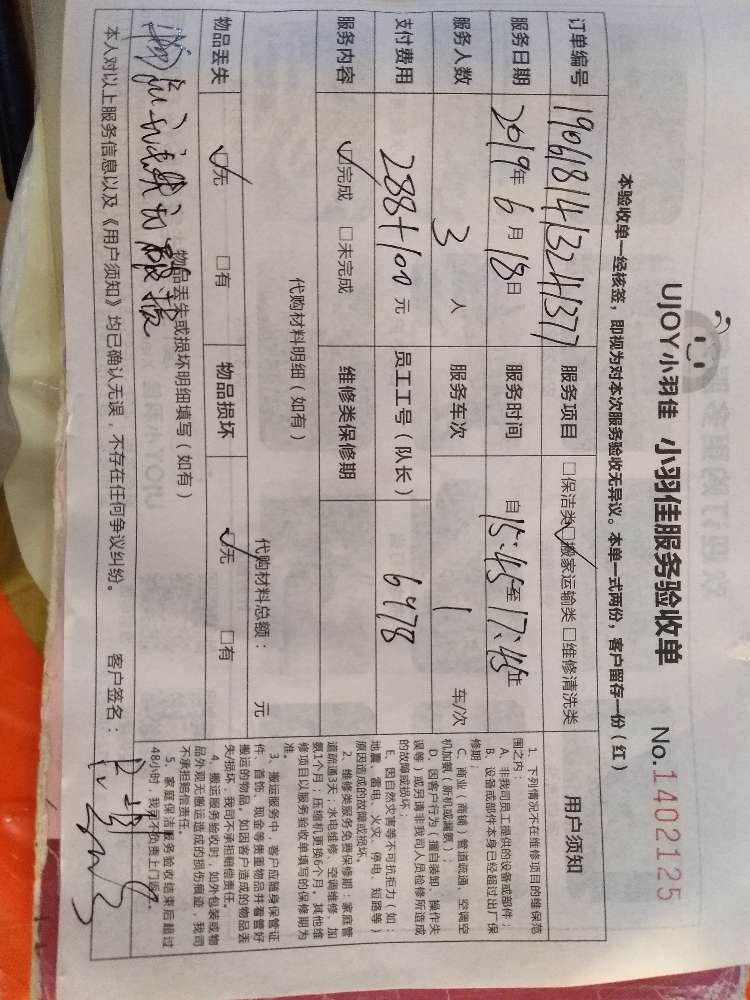 UJOY小羽佳 小羽佳服务验收单 No.1402125
本验收单一经核签，即视为对本次服务验收无异议。本单一式两份，客户留存一份（红）
订单编号 1906181413241377 服务项目 □保洁类☑搬家运输类 □维修清洗类
服务日期 2019年6月18日 服务时间 自15:45至17:45止
服务人数 3人 服务车次 1 车/次
支付费用 288+100元 员工工号（队长） 6978
服务内容 ☑完成 □未完成 维修类保修期
代购材料明细（如有）
代购材料总额： 元
物品丢失 ☑无 □有 物品损坏 ☑无 □有
物品丢失或损坏明细填写（如有）
本人对以上服务信息以及《用户须知》均已确认无误，不存在任何争议纠纷。 客户签名：
用户须知
1、下列情况不在维修项目的维保范
围之内：
A、非我司员工提供的设备或部件；
B、设备或部件本身已经超过出厂保
修期；
C、商业（商铺）管道疏通，空调空
机加氨（新机或漏氨）；
D、因客户行为（擅自装卸、操作失
误等）或另请非我司人员检修所造成
的故障或损坏；
E、因自然灾害等不可抗拒力（如：
地震、雷电、火灾、停电、短路等）
原因造成的故障或损坏。
2、维修类服务免费保修期：家庭管
道疏通3天；水电维修、空调维修、加
氨1个月；压缩机更换6个月，其他维
修项目以服务验收单填写的保修期为
准。
3、搬运服务中，客户应随身保管证
件、首饰、现金等贵重物品并看管好
搬运的物品。如因客户造成的物品丢
失/损坏，我司不承担赔偿责任。
4、搬运服务验收时，如外包装或物
品外观无搬运造成的损伤痕迹，我司
不承担赔偿责任。
5、家庭保洁服务验收结束后超过
48小时，我司不负责上门返工。